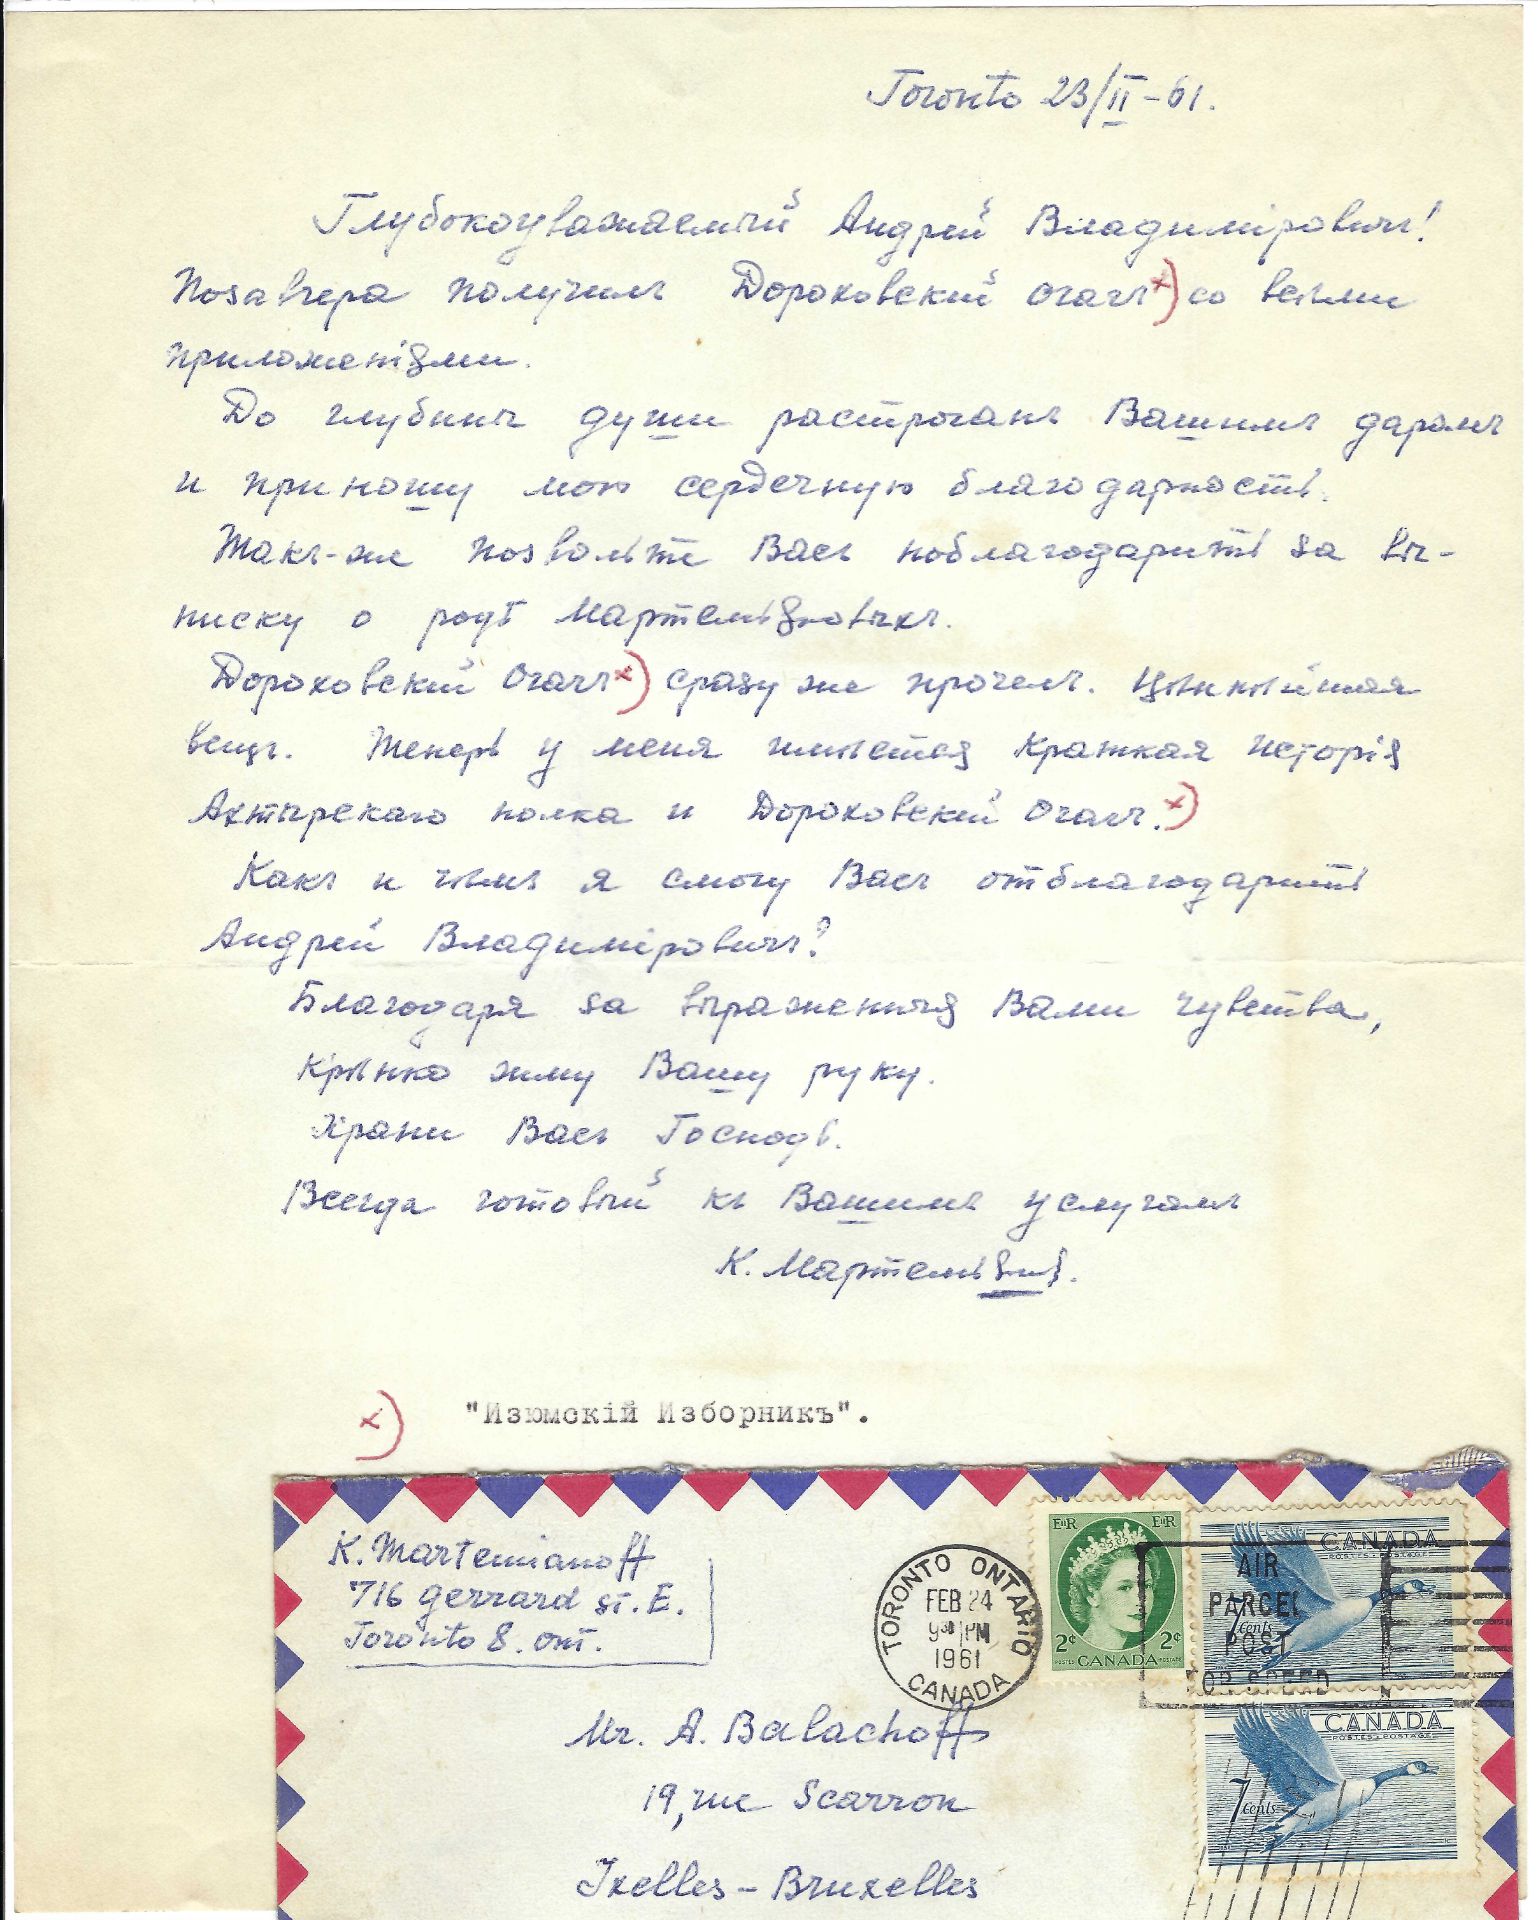 Toronto 23/II-61.
Глубокоуважаемый Андрей Владимировичъ!
Позавчера получилъ Дороховскій Очагъ х) со всѣми
приложеніями.
До глубины души растроганъ Вашимъ даромъ
и приношу мою сердечную благодарность.
Такъ-же позвольте Васъ поблагодарить за вы-
писку о родѣ Мартемьяновыхъ.
Дороховскій Очагъ х) сразу же прочелъ. Цѣннѣйшая
вещь. Теперь у меня имѣется Краткая Исторія
Ахтырскаго полка и Дороховскій Очагъ. х)
Какъ и чѣмъ я смогу Васъ отблагодарить
Андрей Владимировичъ?
Благодаря за выраженныя Вами чувства,
Крѣпко жму Вашу руку.
Храни Васъ Господь.
Всегда готовый къ Вашимъ услугамъ
К. Мартемьяновъ.
х) "Изюмскій Изборникъ".
K. Martemianoff
716 Gerrard St. E.
Toronto 8. Ont.
TORONTO ONTARIO
FEB 24
9 30 PM
1961
CANADA
EIIR EIIR
2¢ 2¢
POSTES CANADA POSTAGE
CANADA
POSTES POSTAGE
7 cents
AIR
PARCEL
POST
FOR SPEED
CANADA
POSTES POSTAGE
7 cents
Mr. A. Balachoff
19, rue Scarron
Ixelles - Bruxelles